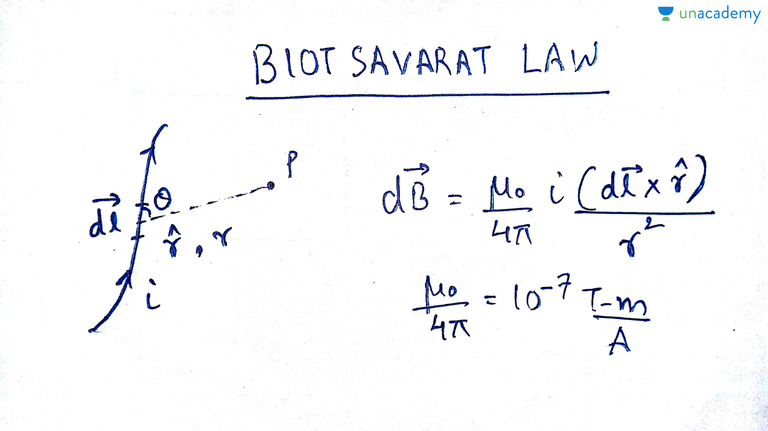 unacademy
BIOT SAVARAT LAW
P
θ
d\vec{l}
\hat{r}, r
i
d\vec{B} = \frac{μ₀}{4π} i \frac{(d\vec{l} × \hat{r})}{r²}
\frac{μ₀}{4π} = 10⁻⁷ \frac{T-m}{A}